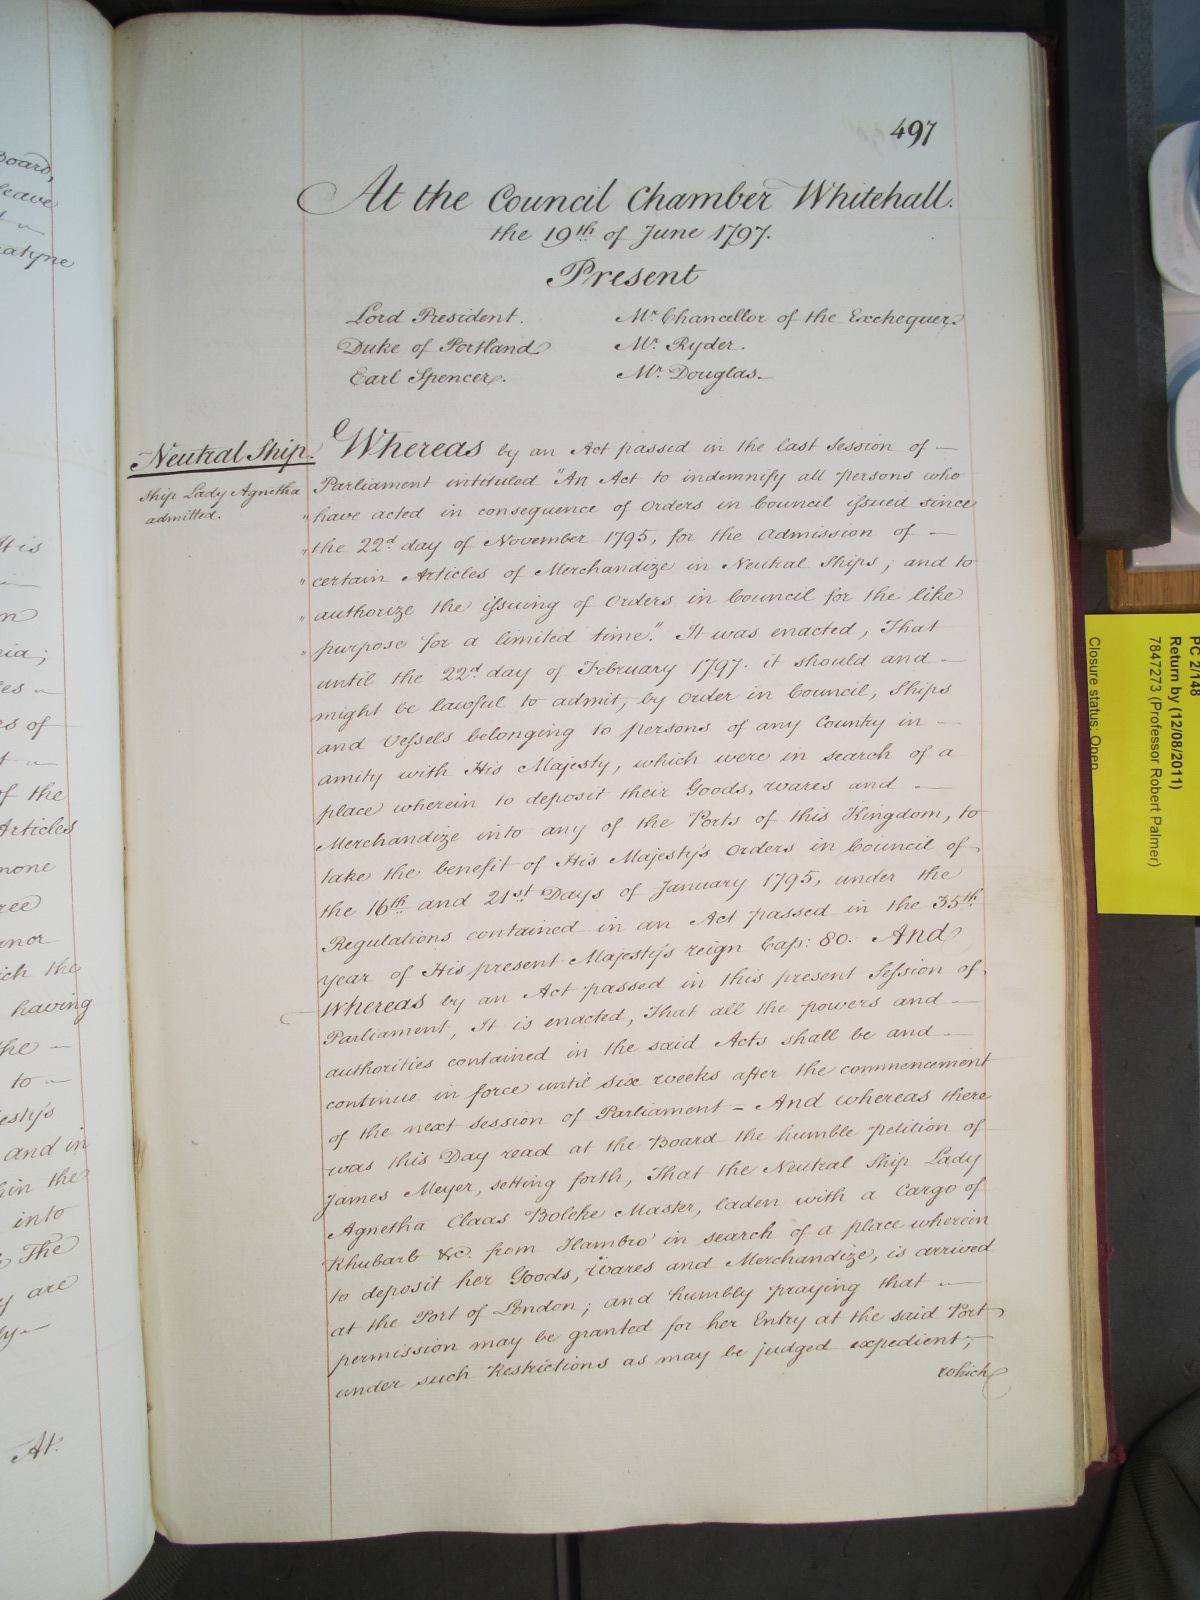 Board,
leave
497
At the Council Chamber Whitehall.
the 19th of June 1797.
Present
Lord President.
Duke of Portland
Earl Spencer.
Mr. Chancellor of the Exchequer
Mr. Ryder.
Mr. Douglas.
Neutral Ship.
Ship Lady Agnetha
admitted.
Whereas by an Act passed in the last Session of —
Parliament intituled "An Act to indemnify all persons who
"have acted in consequence of Orders in Council issued since
"the 22d day of November 1795, for the Admission of —
"certain Articles of Merchandize in Neutral Ships; and to
"authorize the issuing of Orders in Council for the like
"purpose for a limited time". It was enacted, That
until the 22d day of February 1797. it should and —
might be lawful to admit, by Order in Council, Ships
and Vessels belonging to persons of any Country in —
amity with His Majesty, which were in search of a
place wherein to deposit their Goods, wares and —
Merchandize into any of the Ports of this Kingdom, to
take the benefit of His Majesty's Orders in Council of
the 16th and 21st Days of January 1795, under the
Regulations contained in an Act passed in the 35th
year of His present Majesty's reign Cap: 80. And
Whereas by an Act passed in this present Session of
Parliament, It is enacted, That all the powers and —
authorities contained in the said Acts shall be and —
continue in force until six weeks after the commencement
of the next Session of Parliament — And whereas there
was this Day read at the Board the humble petition of
James Meyer, setting forth, That the Neutral Ship Lady
Agnetha Claas Boleke Master, laden with a Cargo of
Rhubarb &c. from Hambro' in search of a place wherein
to deposit her Goods, Wares and Merchandize, is arrived
at the Port of London; and humbly praying that —
permission may be granted for her Entry at the said Port
under such Restrictions as may be judged expedient;
which
It is
of the
Articles
none
having
to —
and in
into
The
are
At
PC 2/148
Return by (12/08/2011)
7847273 (Professor Robert Palmer)
Closure status: Open